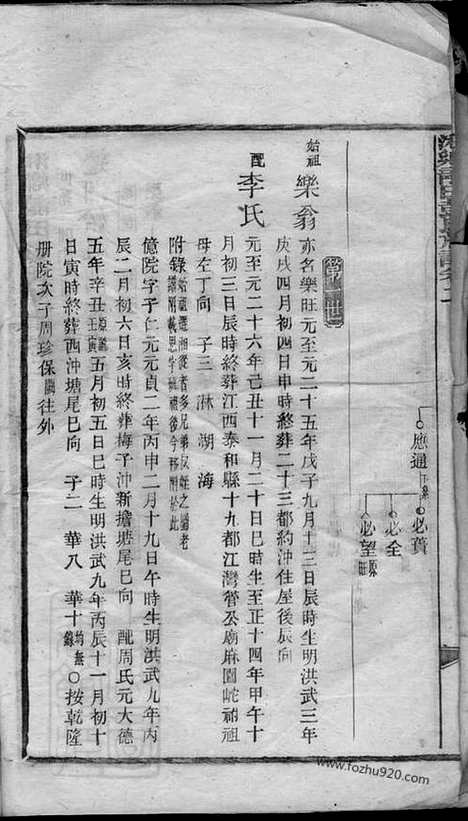 應通
必貴
必全
必望
始祖 樂翁 亦名樂旺元至元二十五年戊子九月十三日辰時生明洪武三年
庚戌四月初四日申時終葬二十三都約沖住屋後辰向
配 李氏 元至元二十六年己丑十一月二十日巳時生至正十四年甲午十
月初三日辰時終葬江西泰和縣十九都江灣管公廟麻園蛇祔祖
母左丁向 子三 淋 湖 海
附錄
億院字子仁元元貞二年丙申二月十九日午時生明洪武九年丙
辰二月初六日亥時終葬梅子沖新擔塘尾巳向 配周氏元大德
五年辛丑 五月初五日巳時生明洪武九年丙辰十一月初十
日寅時終葬西沖塘尾巳向 子二 華八 華十 〇按乾隆
册院次子周珍保 往外
www.fozhu920.com